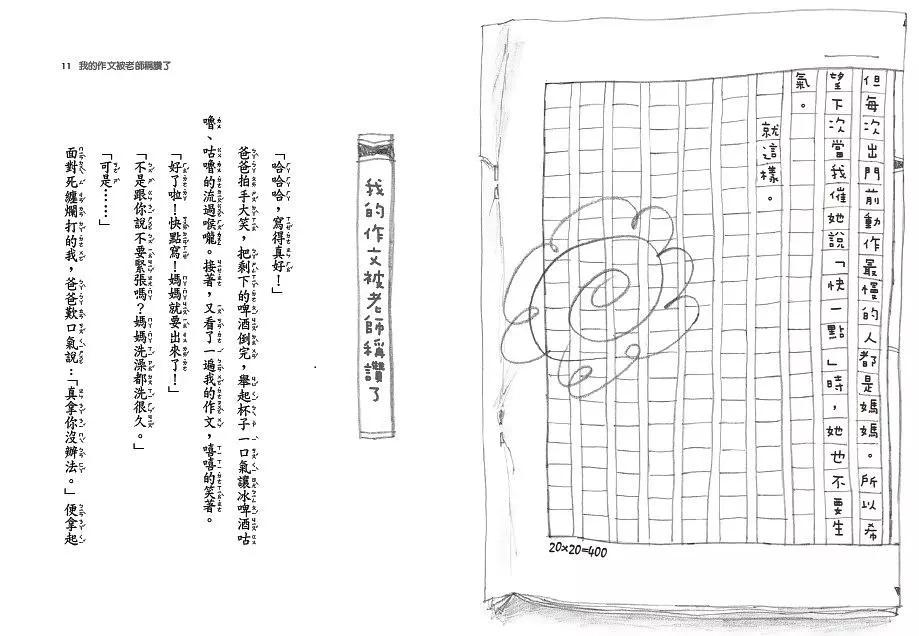 但每次出門前動作最慢的人都是媽媽。所以希
望下次當我催她說「快一點」時，她也不要生
氣。
就這樣。
20×20=400
11 我的作文被老師稱讚了
我的作文被老師稱讚了
「哈哈哈，寫得真好！」
爸爸拍手大笑，把剩下的啤酒倒完，舉起杯子一口氣讓冰啤酒咕
嚕、咕嚕的流過喉嚨。接著，又看了一遍我的作文，嘻嘻的笑著。
「好了啦！快點寫！媽媽就要出來了！」
「不是跟你說不要緊張嗎？媽媽洗澡都洗很久。」
「可是……」
面對死纏爛打的我，爸爸歎口氣說：「真拿你沒辦法。」便拿起